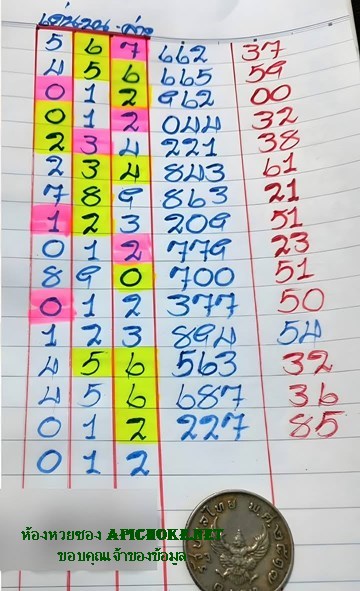 เด่นบน-ล่าง
5 6 7 662 37
4 5 6 665 59
0 1 2 962 00
0 1 2 044 32
2 3 4 221 38
2 3 4 843 61
7 8 9 863 21
1 2 3 209 51
0 1 2 779 23
8 9 0 700 51
0 1 2 377 50
1 2 3 894 54
4 5 6 563 32
4 5 6 687 36
0 1 2 227 85
0 1 2
ห้องหวยซอง APICHOKE.NET
ขอบคุณเจ้าของข้อมูล